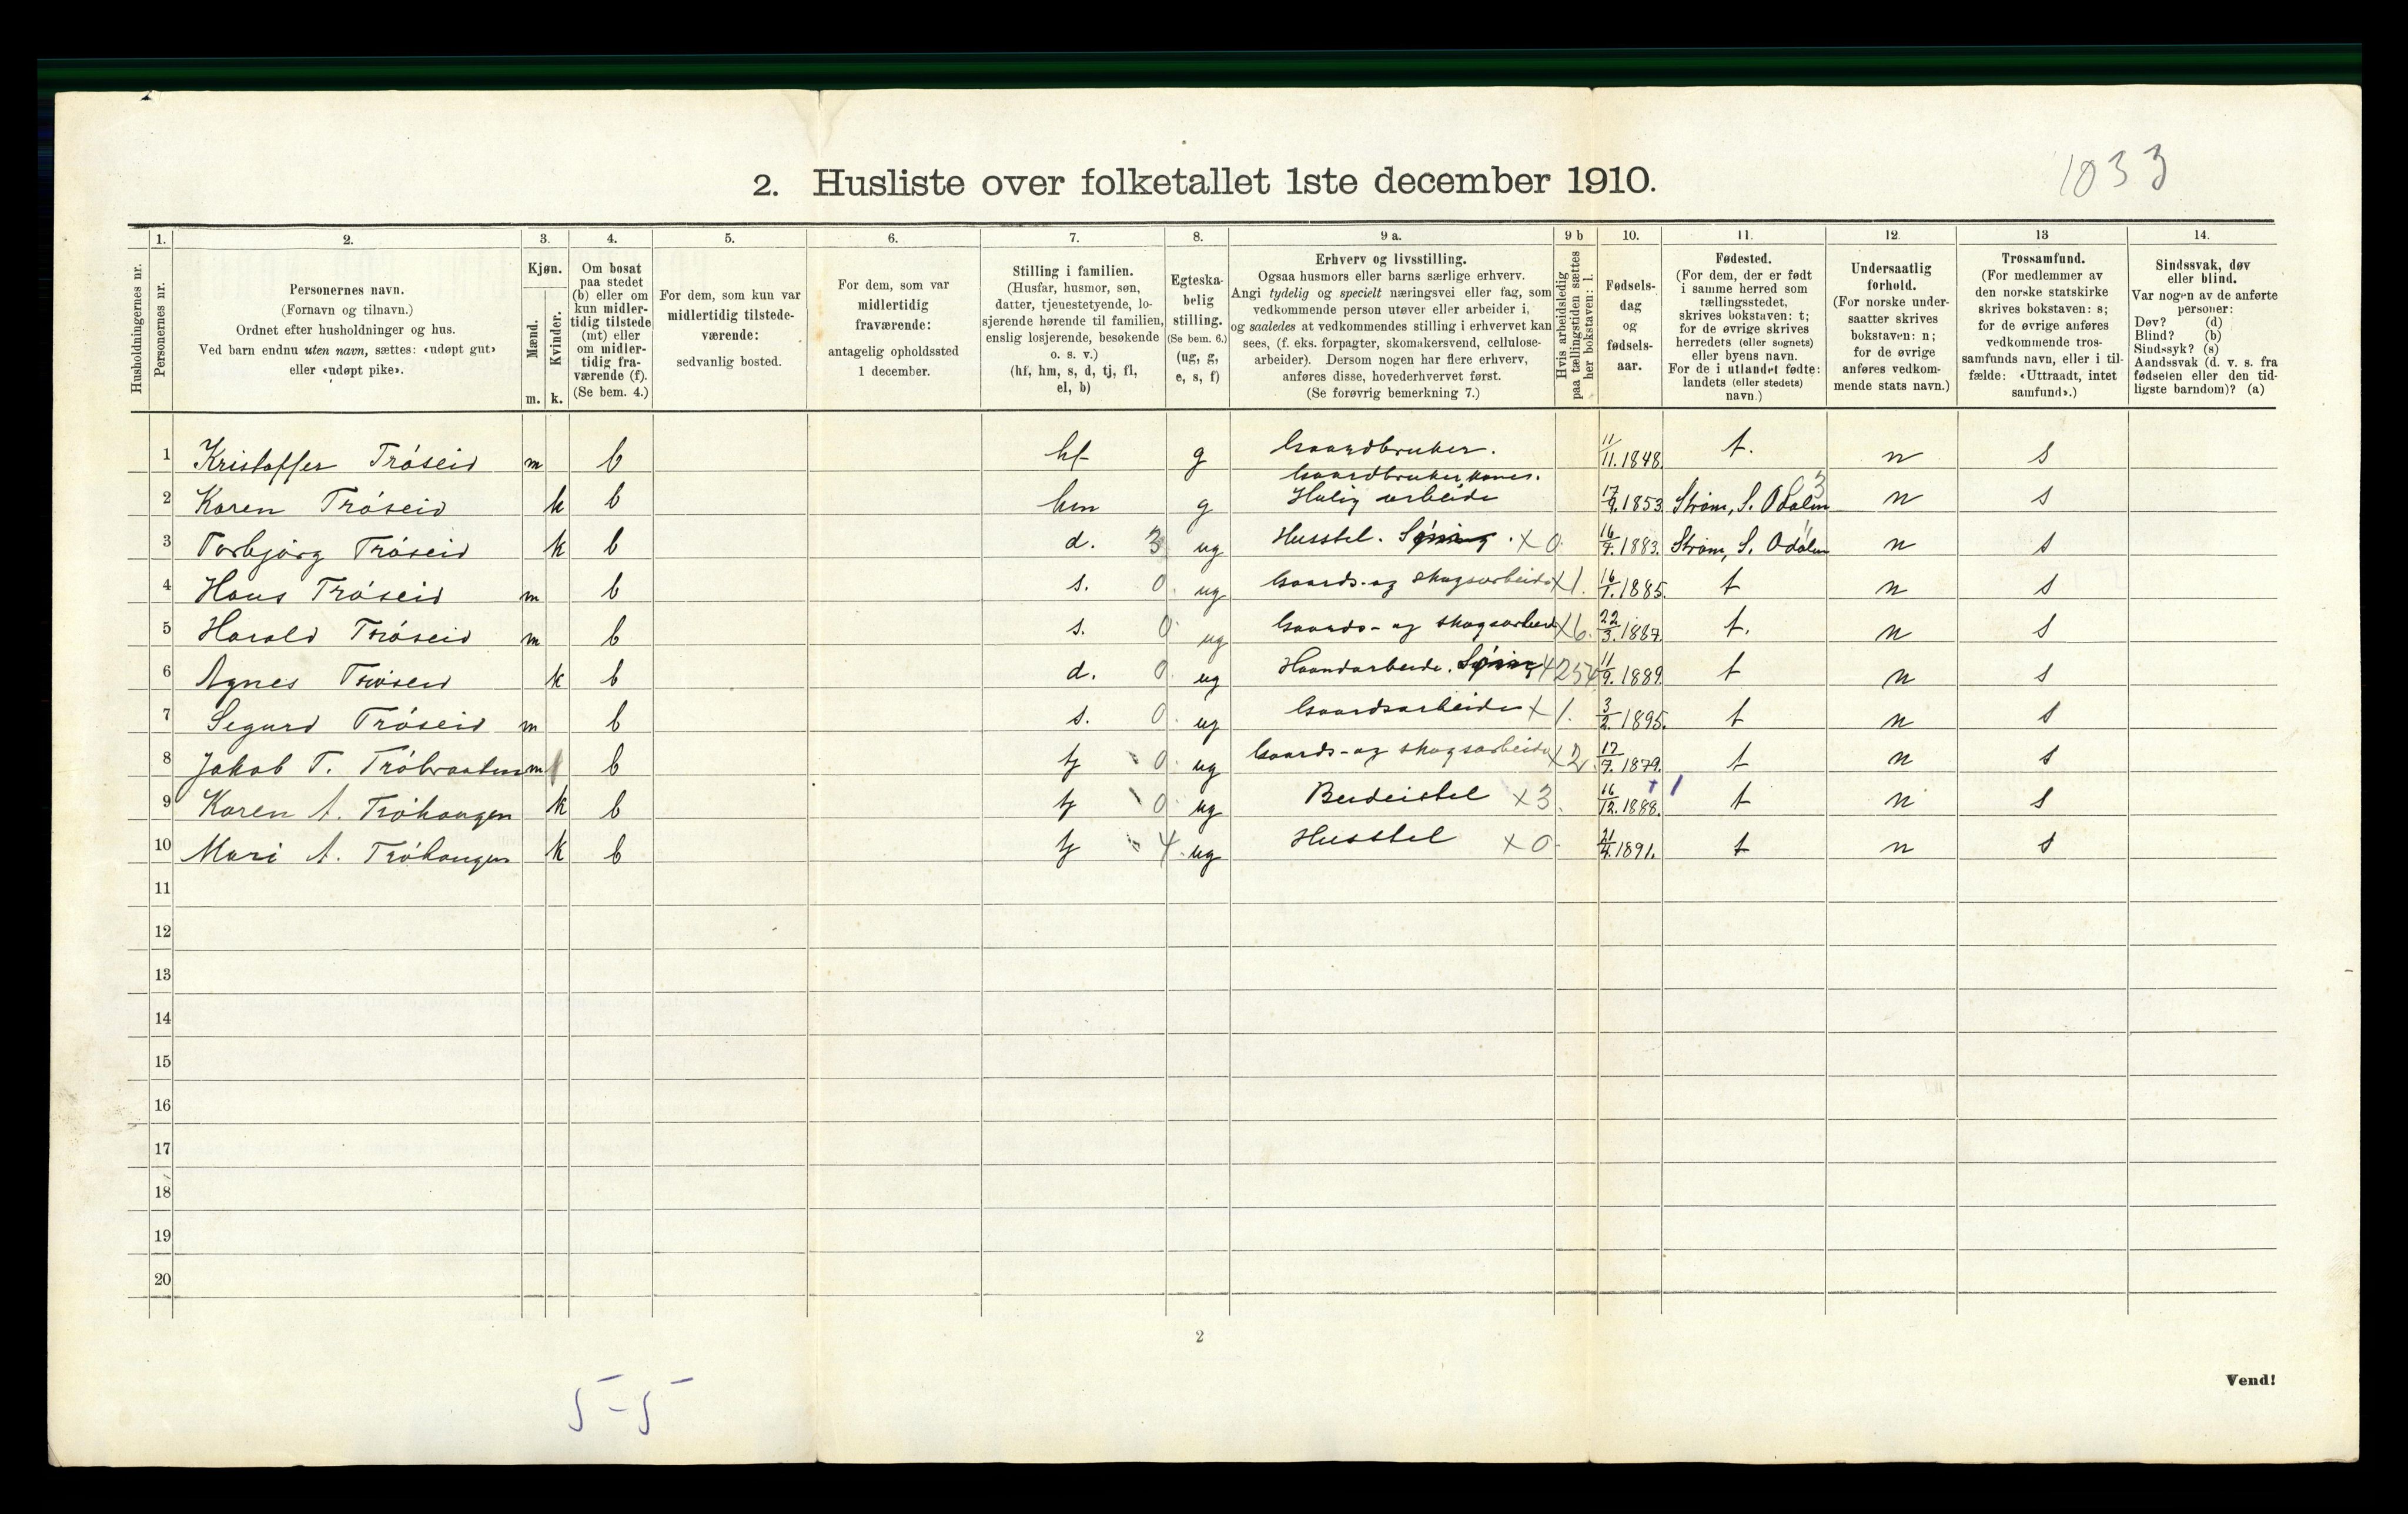 1033
2. Husliste over folketallet 1ste december 1910.
1. 2. 3. 4. 5. 6. 7. 8. 9 a. 9 b 10. 11. 12. 13 14.
Husholdningernes nr.
Personernes nr.
Personernes navn.
(Fornavn og tilnavn.)
Ordnet efter husholdninger og hus.
Ved barn endnu uten navn, sættes: «udøpt gut»
eller «udøpt pike».
Kjøn.
Mænd.
Kvinder.
m. k.
Om bosat
paa stedet
(b) eller om
kun midler-
tidig tilstede
(mt) eller
om midler-
tidig fra-
værende (f).
(Se bem. 4.)
For dem, som kun var
midlertidig tilstede-
værende:
sedvanlig bosted.
For dem, som var
midlertidig
fraværende:
antagelig opholdssted
1 december.
Stilling i familien.
(Husfar, husmor, søn,
datter, tjenestetyende, lo-
sjerende hørende til familien,
enslig losjerende, besøkende
o. s. v.)
(hf, hm, s, d, tj, fl,
el, b)
Egteska-
belig
stilling.
(Se bem. 6.)
(ug, g,
e, s, f)
Erhverv og livsstilling.
Ogsaa husmors eller barns særlige erhverv.
Angi tydelig og specielt næringsvei eller fag, som
vedkommende person utøver eller arbeider i,
og saaledes at vedkommendes stilling i erhvervet kan
sees, (f. eks. forpagter, skomakersvend, cellulose-
arbeider). Dersom nogen har flere erhverv,
anføres disse, hovederhvervet først.
(Se forøvrig bemerkning 7.)
Hvis arbeidsledig
paa tællingstiden sættes
her bokstaven: l.
Fødsels-
dag
og
fødsels-
aar.
Fødested.
(For dem, der er født
i samme herred som
tællingsstedet,
skrives bokstaven: t;
for de øvrige skrives
herredets (eller sognets)
eller byens navn.
For de i utlandet fødte:
landets (eller stedets)
navn.)
Undersaatlig
forhold.
(For norske under-
saatter skrives
bokstaven: n;
for de øvrige
anføres vedkom-
mende stats navn.)
Trossamfund.
(For medlemmer av
den norske statskirke
skrives bokstaven: s;
for de øvrige anføres
vedkommende tros-
samfunds navn, eller i til-
fælde: «Uttraadt, intet
samfund».)
Sindssvak, døv
eller blind.
Var nogen av de anførte
personer:
Døv? (d)
Blind? (b)
Sindssyk? (s)
Aandssvak (d. v. s. fra
fødselen eller den tid-
ligste barndom)? (a)
1 Kristoffer Tróseid m b hf g Gaardbruker. 11/11.1848. t. n s
Gaardbrukerkones.
2 Karen Tróseid k b hm g Huslig arbeide 17/9.1853 Strøm, S. Odalen 3 n s
3 Torbjörg Tróseid k b d. 3 ug Husstel. Syning. x 0 16/7.1883. Strøm, S. Odalen n s
4 Hans Tróseid m b s. 0 ug Gaards- og skogsarbeide x 1. 16/1.1885. t n s
5 Harald Tróseid m b s. 0 ug Gaards- og skogsarbeid x 6. 22/3.1887. t. n s
6 Agnes Tróseid k b d. 0 ug Haandarbeide. Syning 11/9.1889. t n s
7 Segurd Tróseid m b s. 0 ug Gaardsarbeide x 1. 3/2.1895. t n s
8 Jakob T. Tróbraaten m b tj 0 ug Gaards- og skogsarbeide x 2. 17/7.1879. t n s
9 Karen A. Tróhaugen k b tj 0 ug Budeistel x 3. 16/12.1888. +1 t n s
10 Mari A. Tróhaugen k b tj 4 ug Husstel x 0 21/4.1891. t n s
11
12
13
14
15
16
17
18
19
20
2
Vend!
5-5